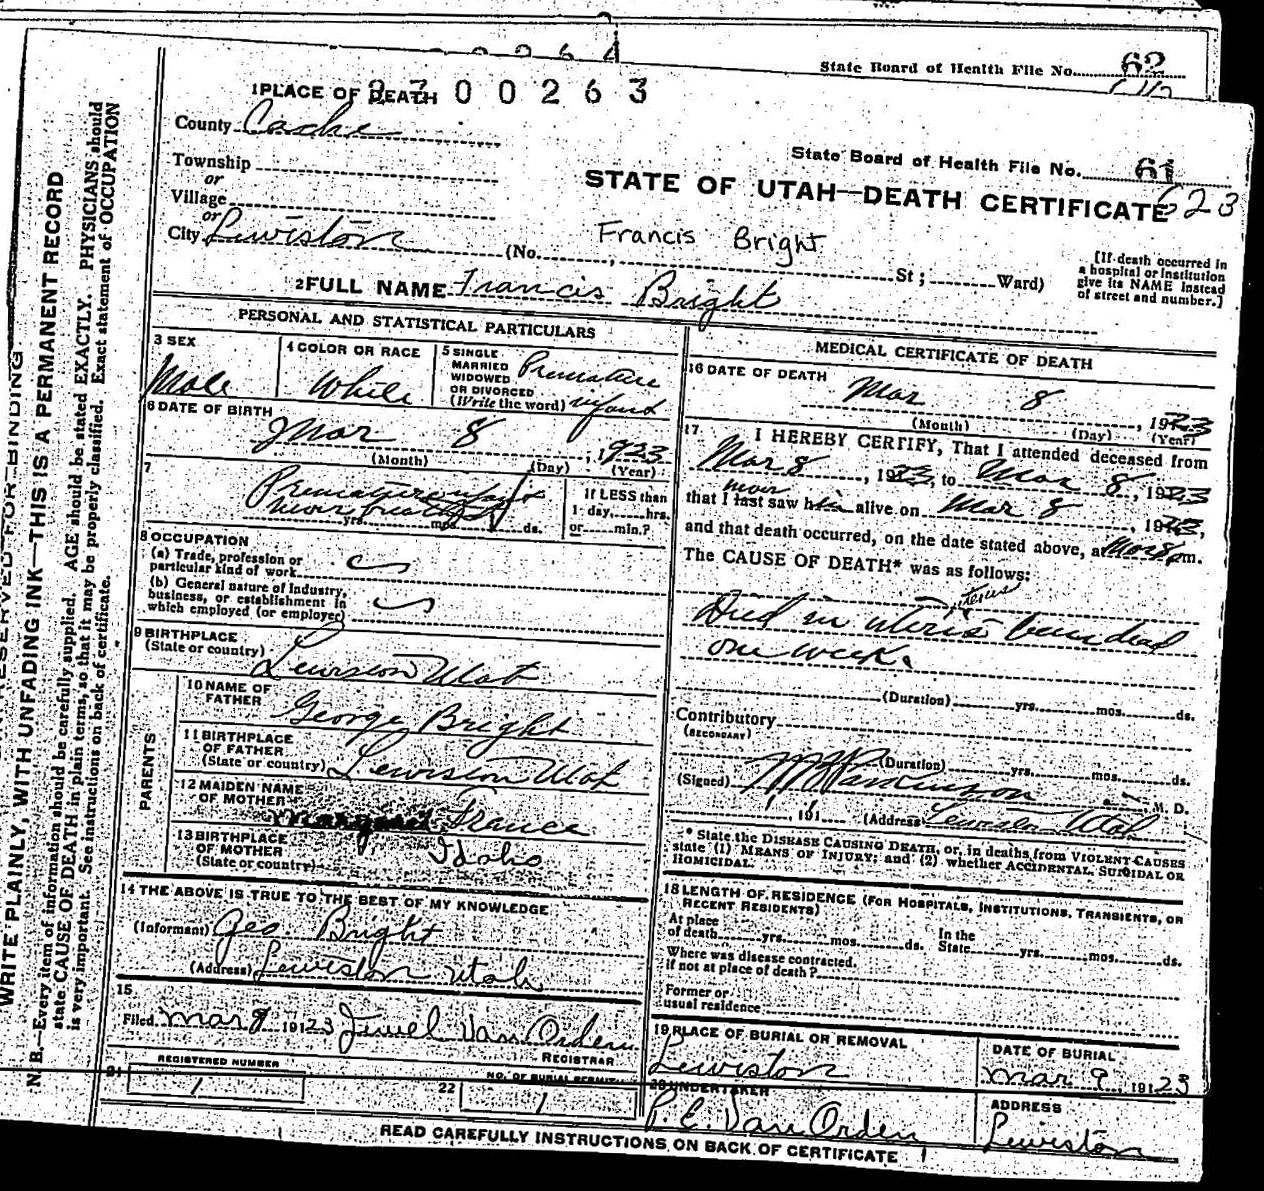 State Board of Health File No. 62
1 PLACE OF DEATH
2700263
County Cache
State Board of Health File No. 61
623
Township
or
Village
or
City Lewiston
STATE OF UTAH—DEATH CERTIFICATE
Francis Bright
(No. St; Ward)
[If death occurred in a hospital or institution give its NAME instead of street and number.]
2 FULL NAME Francis Bright
PERSONAL AND STATISTICAL PARTICULARS
3 SEX
Male
4 COLOR OR RACE
White
5 SINGLE MARRIED WIDOWED OR DIVORCED (Write the word)
Premature infant
6 DATE OF BIRTH
Mar 8, 1923
(Month) (Day) (Year)
7
Premature infant
never breathed
yrs. mos. ds.
If LESS than
1 day, hrs.
or min.?
8 OCCUPATION
(a) Trade, profession or
particular kind of work
(b) General nature of Industry,
business, or establishment in
which employed (or employer)
9 BIRTHPLACE
(State or country) Lewiston Utah
PARENTS
10 NAME OF
FATHER
George Bright
11 BIRTHPLACE
OF FATHER
(State or country) Lewiston Utah
12 MAIDEN NAME
OF MOTHER
Margaret France
13 BIRTHPLACE
OF MOTHER
(State or country) Idaho
14 THE ABOVE IS TRUE TO THE BEST OF MY KNOWLEDGE
(Informant) Geo. Bright
(Address) Lewiston Utah
15
Filed Mar 9 19123 Jewel Van Orden
REGISTRAR
REGISTERED NUMBER
1
21
22
NO. OF BURIAL PERMIT
1
MEDICAL CERTIFICATE OF DEATH
16 DATE OF DEATH
Mar 8, 1923
(Month) (Day) (Year)
17
I HEREBY CERTIFY, That I attended deceased from
Mar 8, 1923, to Mar 8, 1923
that I last saw him alive on Mar 8, 1923,
never
and that death occurred, on the date stated above, at Mar 8 m.
The CAUSE OF DEATH* was as follows:
uterus
Died in uteris been dead
one week.
(Duration) yrs. mos. ds.
Contributory
(SECONDARY)
(Duration) yrs. mos. ds.
(Signed) W H Parkinson M. D.
, 191 (Address) Lewiston Utah
* State the DISEASE CAUSING DEATH, or, in deaths from VIOLENT CAUSES
state (1) MEANS OF INJURY; and (2) whether ACCIDENTAL, SUICIDAL OR
HOMICIDAL.
18 LENGTH OF RESIDENCE (FOR HOSPITALS, INSTITUTIONS, TRANSIENTS, OR
RECENT RESIDENTS)
At place
of death yrs. mos. ds.
In the
State yrs. mos. ds.
Where was disease contracted,
if not at place of death?
Former or
usual residence
19 PLACE OF BURIAL OR REMOVAL
Lewiston
DATE OF BURIAL
Mar 9 19123
20 UNDERTAKER
P. E. Van Orden
ADDRESS
Lewiston
READ CAREFULLY INSTRUCTIONS ON BACK OF CERTIFICATE
WRITE PLAINLY, WITH UNFADING INK—THIS IS A PERMANENT RECORD
N. B.—Every item of information should be carefully supplied. AGE should be stated EXACTLY. PHYSICIANS should
state CAUSE OF DEATH in plain terms, so that it may be properly classified. Exact statement of OCCUPATION
is very important. See instructions on back of certificate.